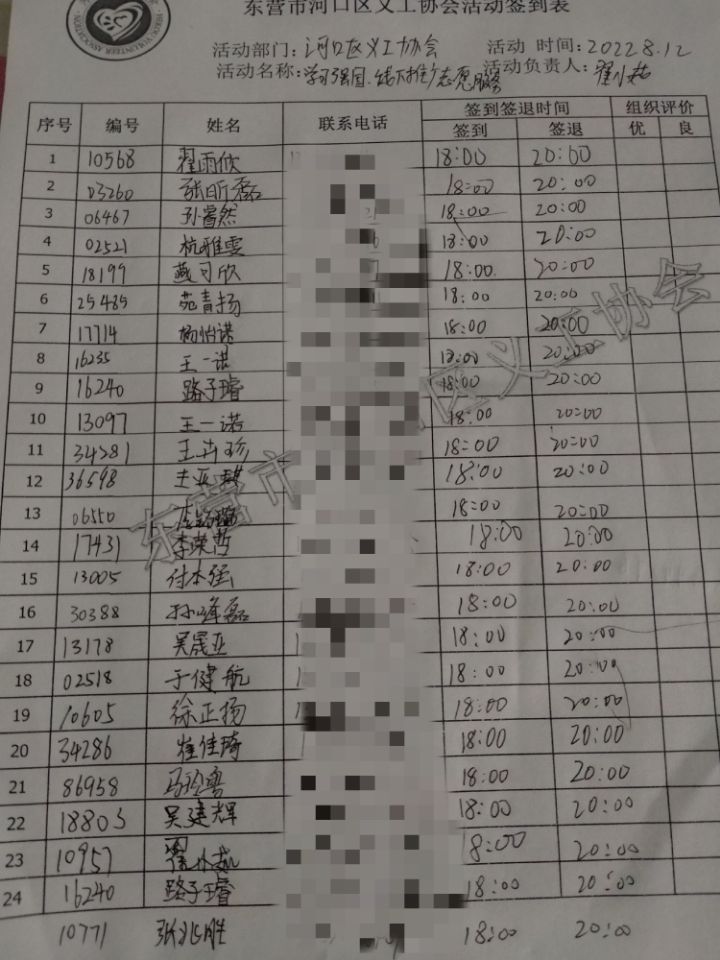 东营市河口区义工协会活动签到表
活动部门：河口区义工协会 活动 时间：2022.8.12
活动名称：学习强国、线下推广志愿服务 活动负责人：翟小茹
序号 编号 姓名 联系电话 签到签退时间 组织评价
签到 签退 优 良
1 10568 翟雨欣 18:00 20:00
2 03260 张昕磊 18:00 20:00
3 06467 孙睿然 18:00 20:00
4 02521 杭雅雯 18:00 20:00
5 18199 燕可欣 18:00 20:00
6 25485 苑青扬 18:00 20:00
7 17714 杨怡诺 18:00 20:00
8 16235 王一诺 18:00 20:00
9 16240 路子璿 18:00 20:00
10 13097 王一诺 18:00 20:00
11 34281 王卉珍 18:00 20:00
12 36598 王亚琪 18:00 20:00
13 06550 18:00 20:00
14 17431 李荣哲 18:00 20:00
15 13005 付本强 18:00 20:00
16 30388 孙峰磊 18:00 20:00
17 13178 吴晟亚 18:00 20:00
18 02518 于健航 18:00 20:00
19 10605 徐正扬 18:00 20:00
20 34286 崔佳琦 18:00 20:00
21 86958 18:00 20:00
22 18803 吴建辉 18:00 20:00
23 10957 翟小茹 18:00 20:00
24 16240 路子璿 18:00 20:00
10771 18:00 20:00